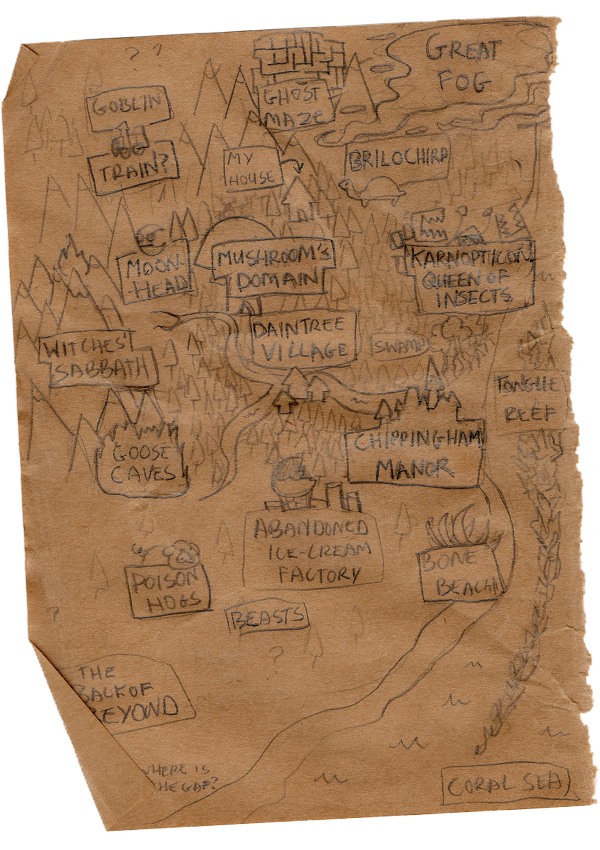 ? ?
GREAT
FOG
GOBLIN
GHOST
MAZE
FOG
TRAIN?
MY
HOUSE
BRILOCHIRA
MOON-
HEAD
MUSHROOM'S
DOMAIN
KARNOPTICON
QUEEN OF
INSECTS
DAINTREE
VILLAGE
SWAMP
WITCHES'
SABBATH
TONGUE
REEF
GOOSE
CAVES
CHIPPINGHAM
MANOR
ABANDONED
ICE-CREAM
FACTORY
BONE
BEACH
POISON
HOGS
BEASTS
?
?
THE
BACK OF
BEYOND
WHERE IS
THE GAF?
CORAL SEA